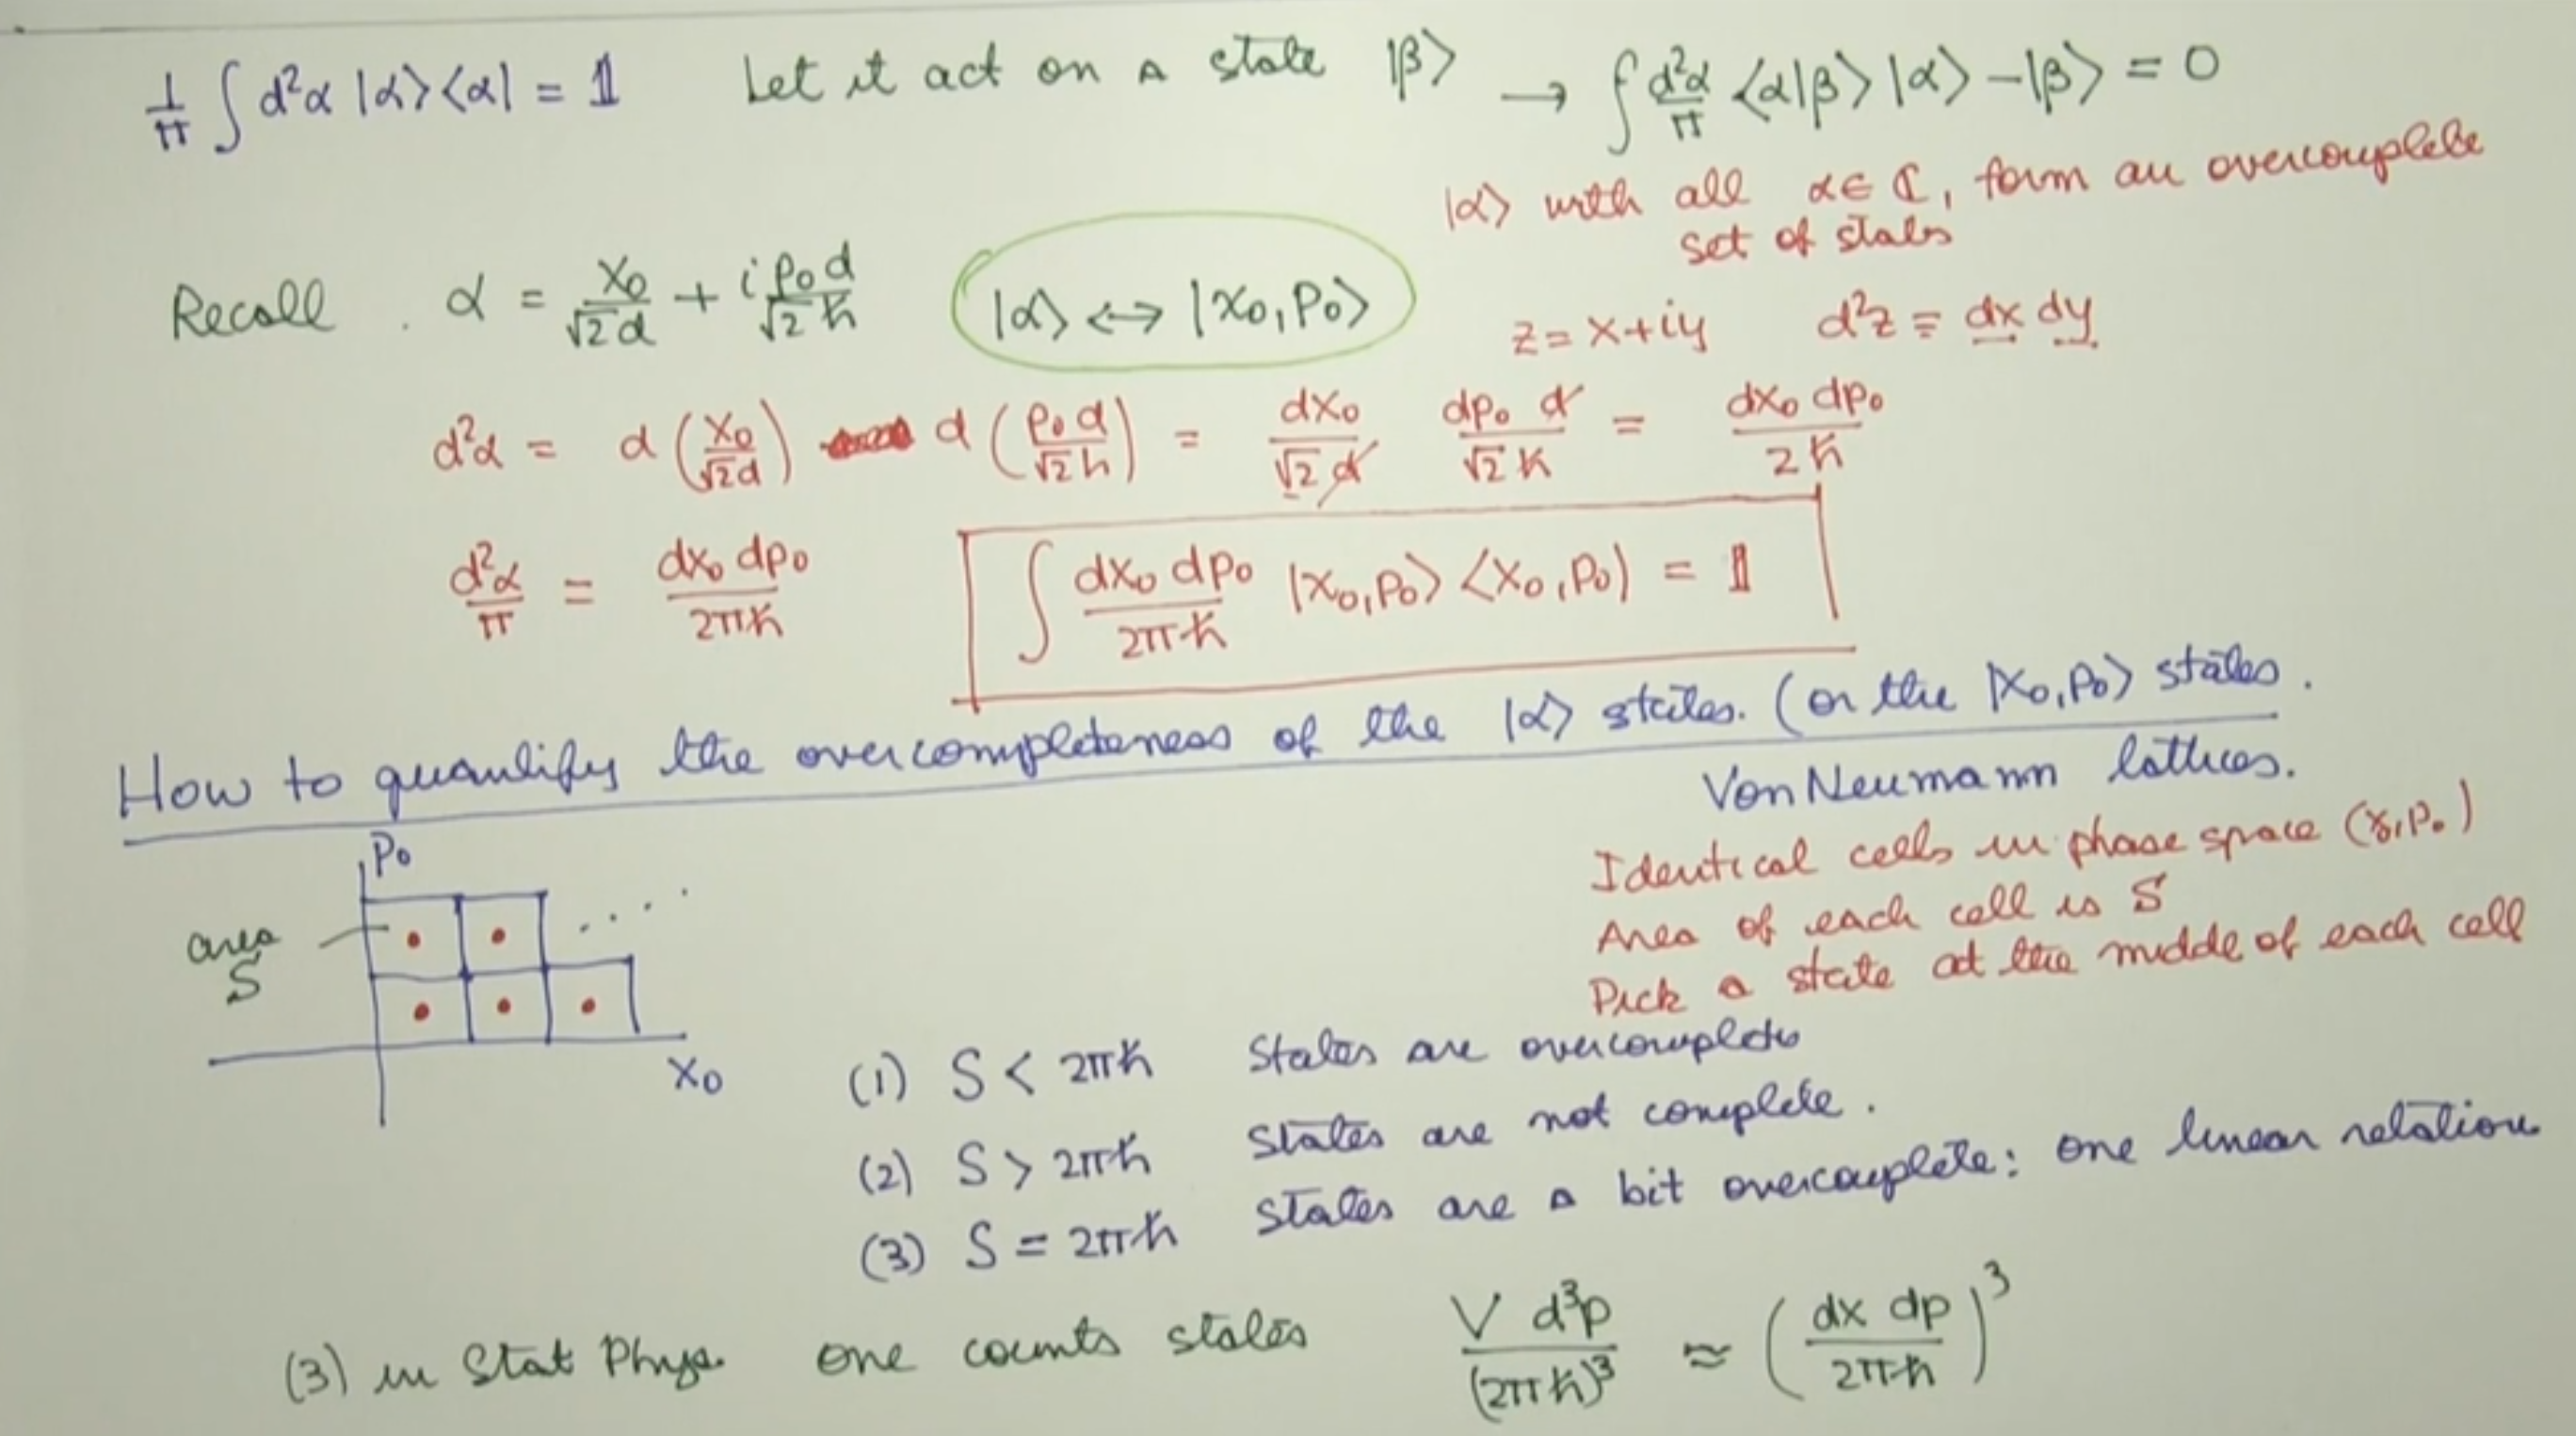 1/π ∫ d²α |α⟩⟨α| = 𝟙 Let it act on a state |β⟩ → ∫ d²α/π ⟨α|β⟩ |α⟩ − |β⟩ = 0
|α⟩ with all α ∈ ℂ, form an overcomplete
set of states
Recall . α = x₀/(√2 d) + i p₀ d/(√2 ħ) |α⟩ ↔ |x₀, p₀⟩
z = x + iy d²z ≡ dx dy
d²α = d (x₀/(√2 d)) d (p₀ d/(√2 ħ)) = dx₀/(√2 d) dp₀ d/(√2 ħ) = dx₀ dp₀/(2ħ)
d²α/π = dx₀ dp₀/(2πħ) ∫ dx₀ dp₀/(2πħ) |x₀, p₀⟩ ⟨x₀, p₀) = 𝟙
How to quantify the overcompleteness of the |α⟩ states. (or the |x₀, p₀⟩ states.
Von Neumann lattices.
Identical cells in phase space (x₀, p₀)
Area of each cell is S
Pick a state at the middle of each cell
p₀
area
S
x₀
(1) S < 2πħ States are overcomplete
(2) S > 2πħ States are not complete.
(3) S = 2πħ States are a bit overcomplete: one linear relation
(3) in Stat Phys. one counts states V d³p/(2πħ)³ ≈ (dx dp/(2πħ))³